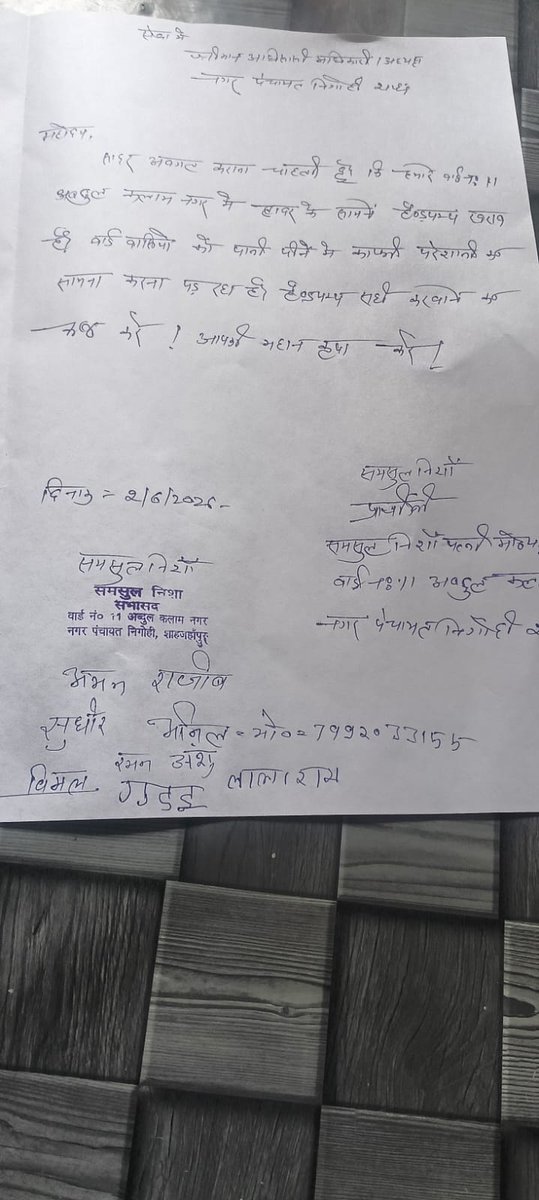 सेवा में
अधिशासी अधिकारी / अध्यक्ष
नगर पंचायत निगोही शाह०
महोदय,
सादर अवगत कराना चाहती हूँ कि हमारे वार्ड नं० 11
अब्दुल कलाम नगर में टावर के सामने हैण्डपम्प खराब
है। वार्ड वासियो को पानी पीने में काफी परेशानी का
सामना करना पड़ रहा है। हैण्डपम्प सही करवाने का
करे ! आपकी महान कृपा
समसुल निशाँ
दिनांक = 2/6/2026
प्रार्थिनी
समसुल निशाँ समसुल निशाँ पत्नी
समसुल निशा
सभासद
वार्ड नं० 11 अब्दुल कलाम नगर
नगर पंचायत निगोही, शाहजहाँपुर
वार्ड नं० 11 अब्दुल
नगर पंचायत निगोही
अमन राजीव
सुधीर = मो०= 7992033155
रमन अंशु
विमल गुड्डू लालाराम